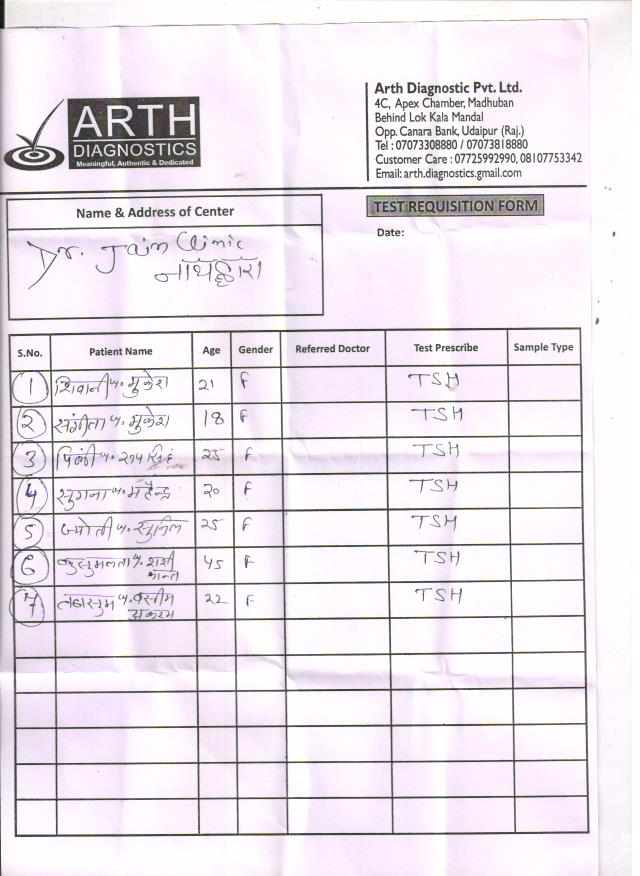 ARTH
DIAGNOSTICS
Meaningful, Authentic & Dedicated
Arth Diagnostic Pvt. Ltd.
4C, Apex Chamber, Madhuban
Behind Lok Kala Mandal
Opp. Canara Bank, Udaipur (Raj.)
Tel : 07073308880 / 07073818880
Customer Care : 07725992990, 08107753342
Email: arth.diagnostics.gmail.com
Name & Address of Center
TEST REQUISITION FORM
Date:
Dr. Jain Clinic
नाथद्वारा
S.No. Patient Name Age Gender Referred Doctor Test Prescribe Sample Type
1 शिवानी w/o. मुकेश 21 F TSH
2 संगीता w/o. मुकेश 18 F TSH
3 पिंकी w/o. 25 F TSH
4 सुगना w/o. महेन्द्र 20 F TSH
5 ज्योती w/o. सुनिल 25 F TSH
6 कुसुमलता w/o. शशी 45 F TSH
कान्त
7 w/o. वसीम 22 F TSH
अकरम